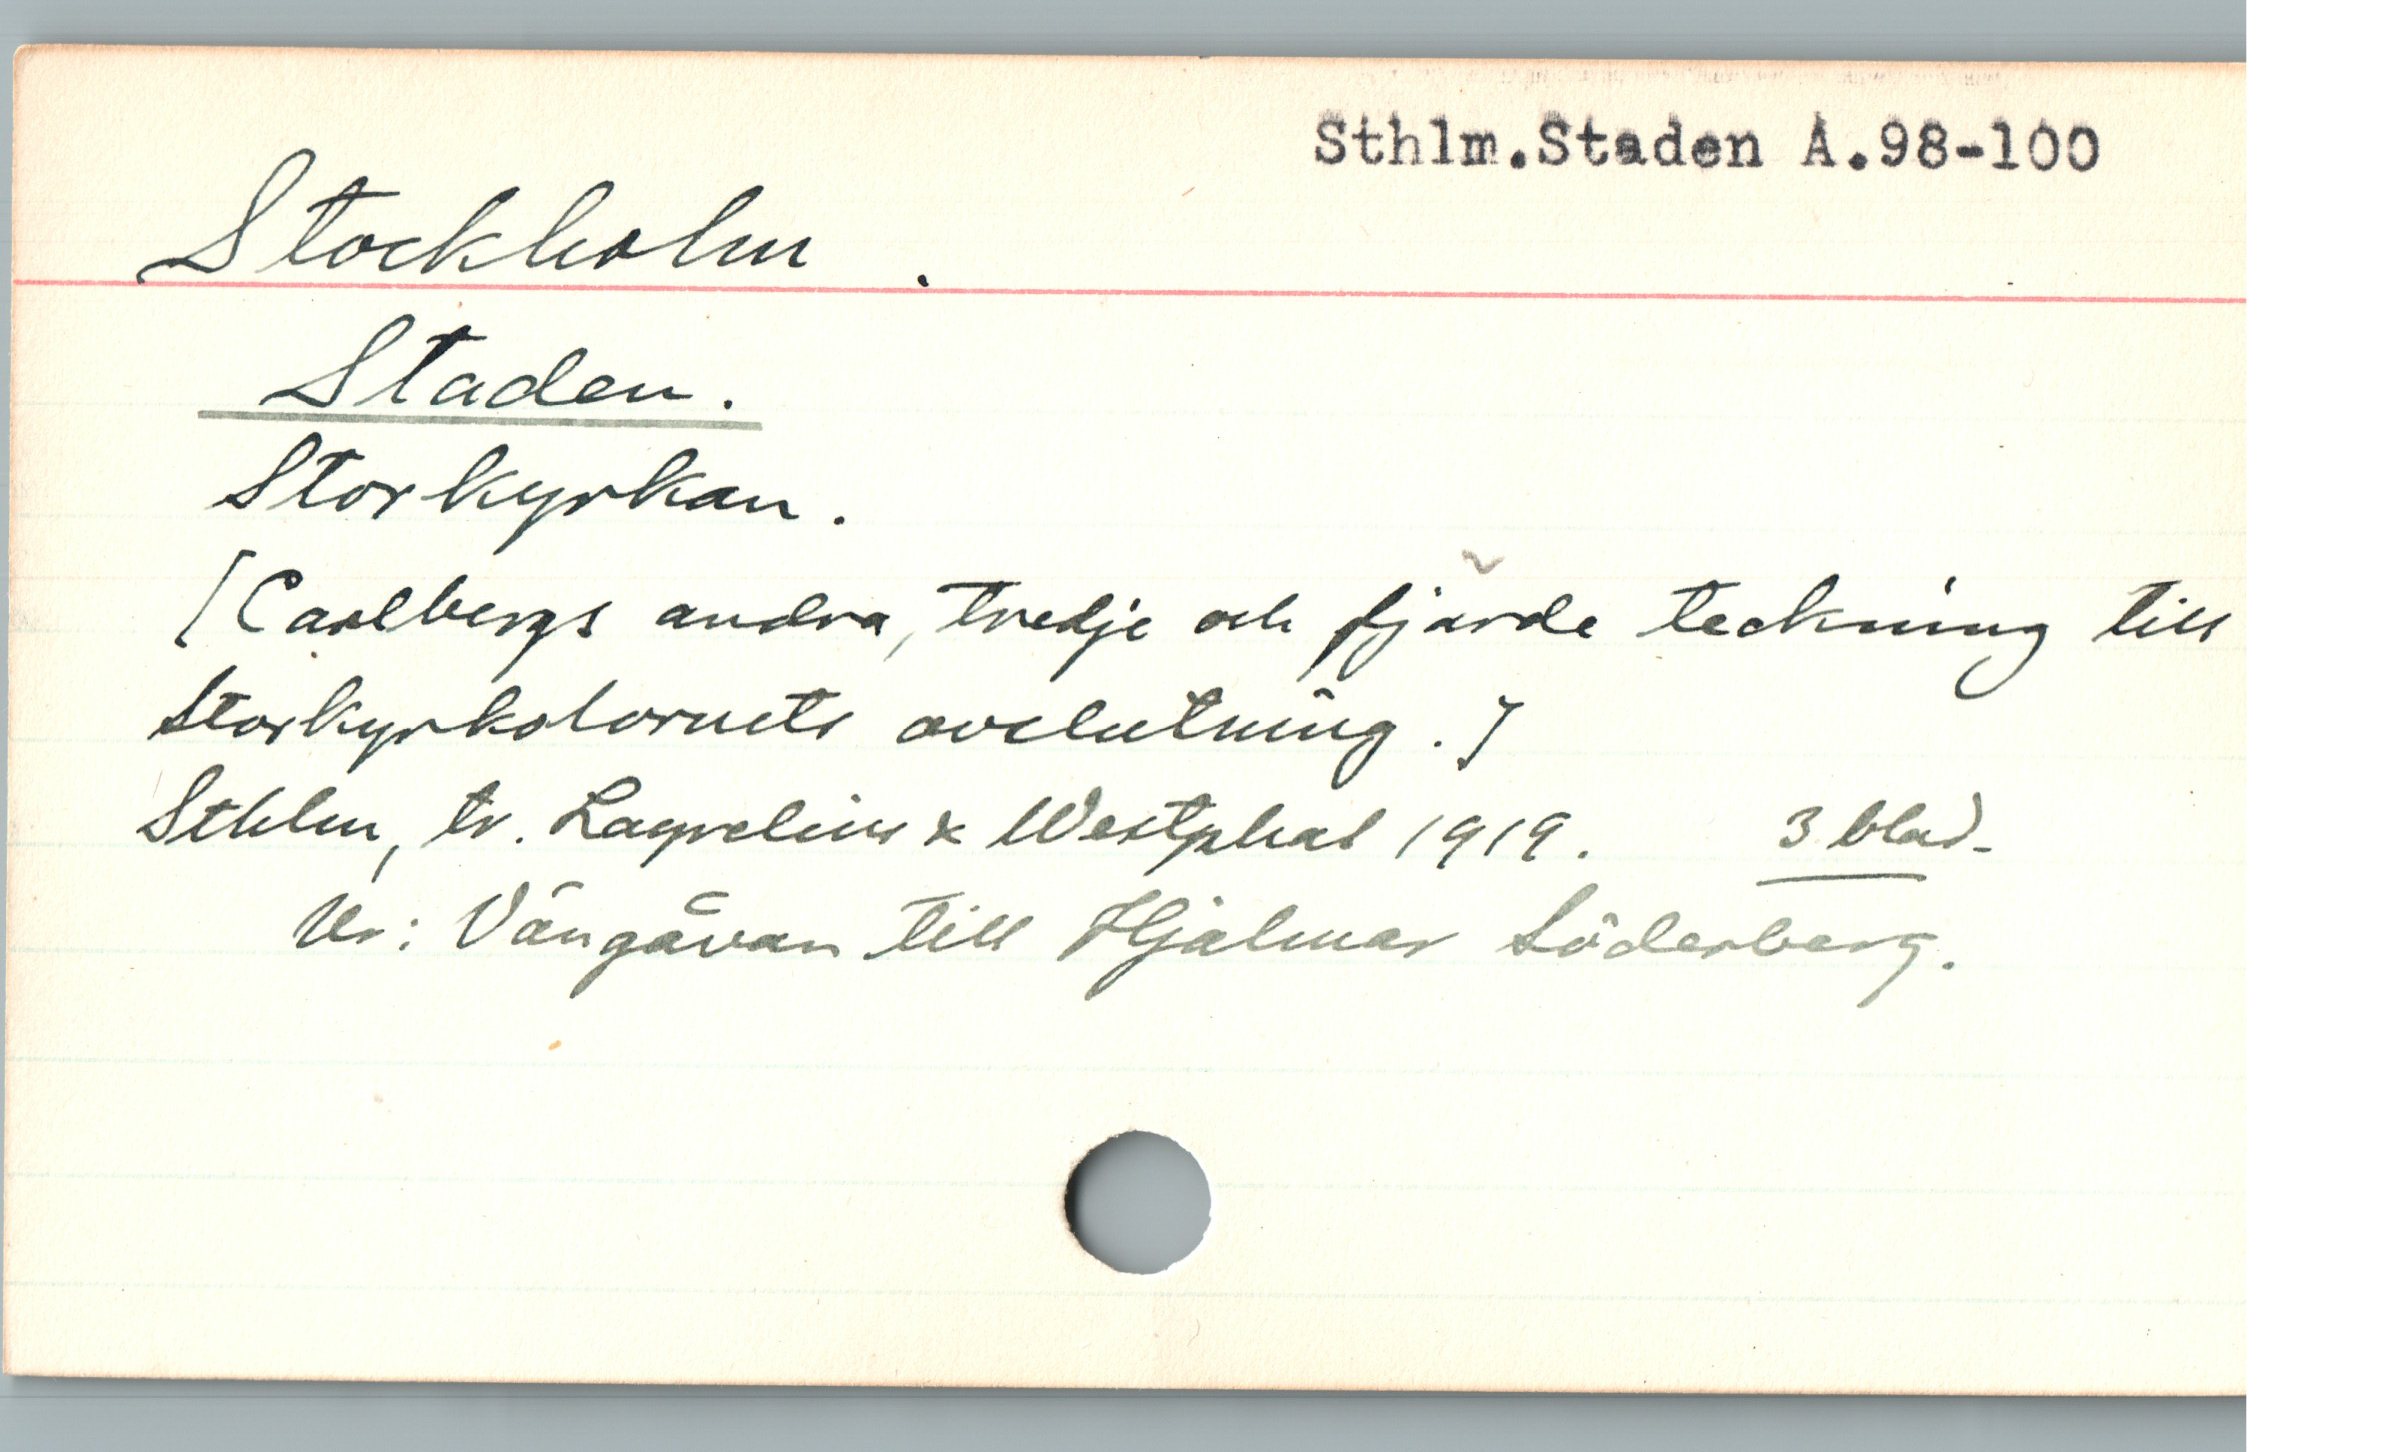 Sthlm.Staden A.98-100
Stockholm.
Staden.
Storkyrkan.
[Carlbergs andra, tredje och fjärde teckning till
Storkyrkotornets avslutning.]
Sthlm, tr. Lagrelius & Westphal 1919. 3 blad.
Ur: Vängåvan till Hjalmar Söderberg.